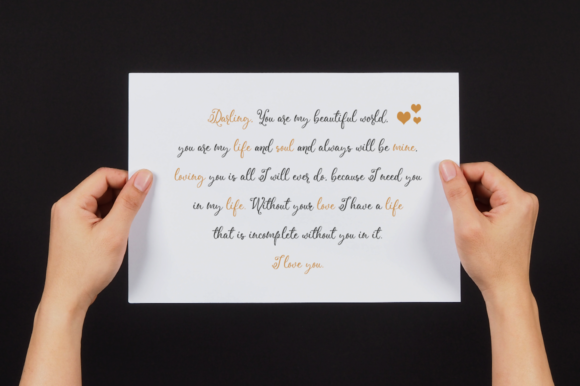 Darling, You are my beautiful world.
you are my life and soul and always will be mine,
loving you is all I will ever do, because I need you
in my life. Without your love I have a life
that is incomplete without you in it.
I love you.